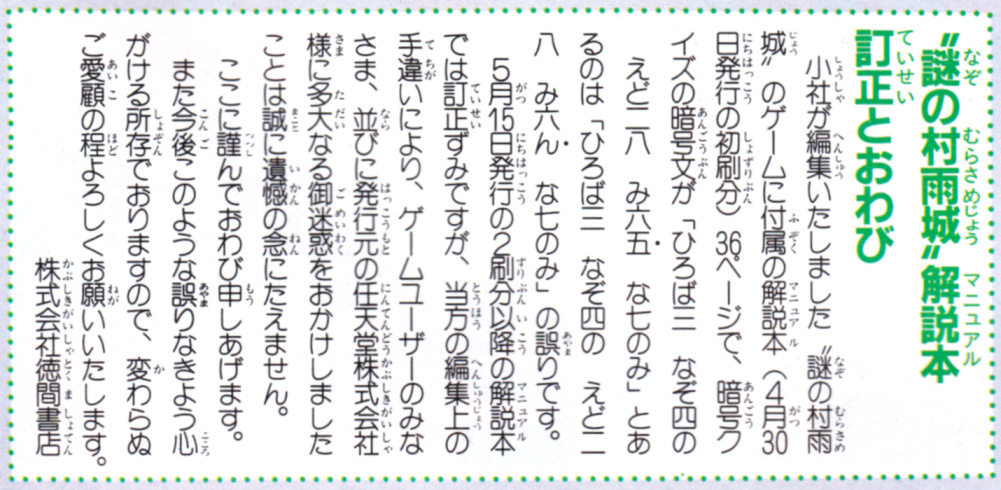 〝謎の村雨城〟解説本
訂正とおわび
小社が編集いたしました〝謎の村雨
城〟のゲームに付属の解説本(4月30
日発行の初刷分)36ページで、暗号ク
イズの暗号文が「ひろば三　なぞ四の
えど二八　み六五　な七のみ」とあ
るのは「ひろば三　なぞ四の　えど二
八　み六ん　な七のみ」の誤りです。
5月15日発行の2刷分以降の解説本
では訂正ずみですが、当方の編集上の
手違いにより、ゲームユーザーのみな
さま、並びに発行元の任天堂株式会社
様に多大なる御迷惑をおかけしました
ことは誠に遺憾の念にたえません。
ここに謹んでおわび申しあげます。
また今後このような誤りなきよう心
がける所存でおりますので、変わらぬ
ご愛顧の程よろしくお願いいたします。
株式会社徳間書店